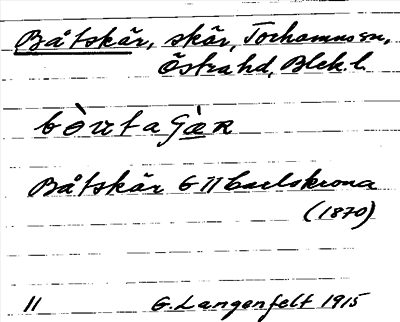 Båtskär, skär, Torhamns sn,
Östra hd, Blek. l.
Båtskär G 11 Carlskrona
(1870)
11 G. Langenfelt 1915